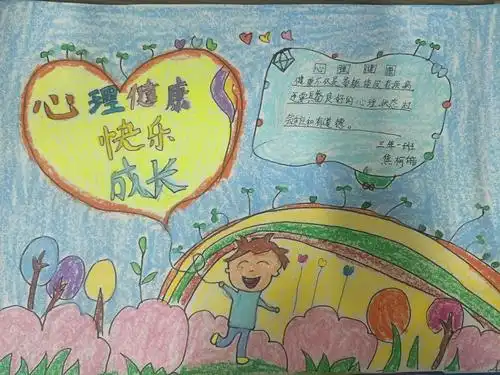 心理健康
快乐
成长
心理健康
健康不仅是身体没有疾病
还要具备良好的心理状态社
会适应和有道德。
三年一班
焦柯皓